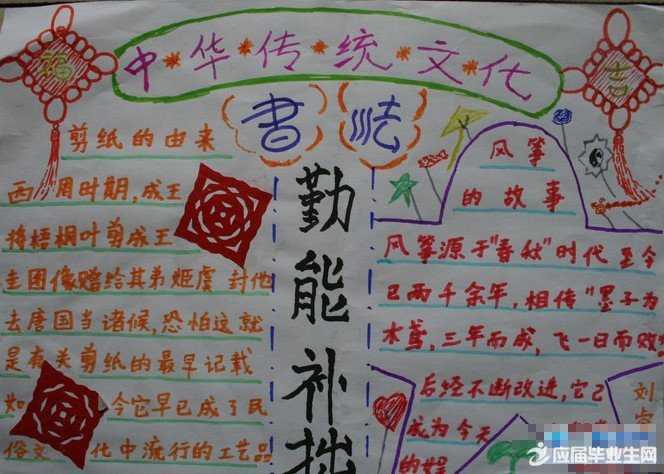 中华传统文化
福
吉
書法
剪纸的由来
西周时期,成王
将梧桐叶剪成王
圭图像赠给其弟姬虞 封他
去唐国当诸候,恐怕这就
是有关剪纸的最早记载
如 今它早已成了民
俗文 化中流行的工艺品
勤能补拙
风筝
的故事
风筝源于"春秋"时代 至今
已两千余年,相传"墨子为
木鸢,三年而成,飞一日而败"
后经不断改进,它已
成为今天
的
刘
应届毕业生网